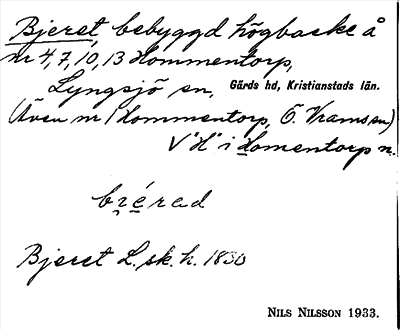 Bjeret, bebyggd högbacke å
nr 4, 7, 10, 13 Hommentorp,
Lyngsjö sn, Gärds hd, Kristianstads län.
(Även nr 1 Hommentorp, Ö. Vrams sn)
V "H" i Homentorp n.
bzérad
Bjeret L. sk. h. 1830
NILS NILSSON 1933.